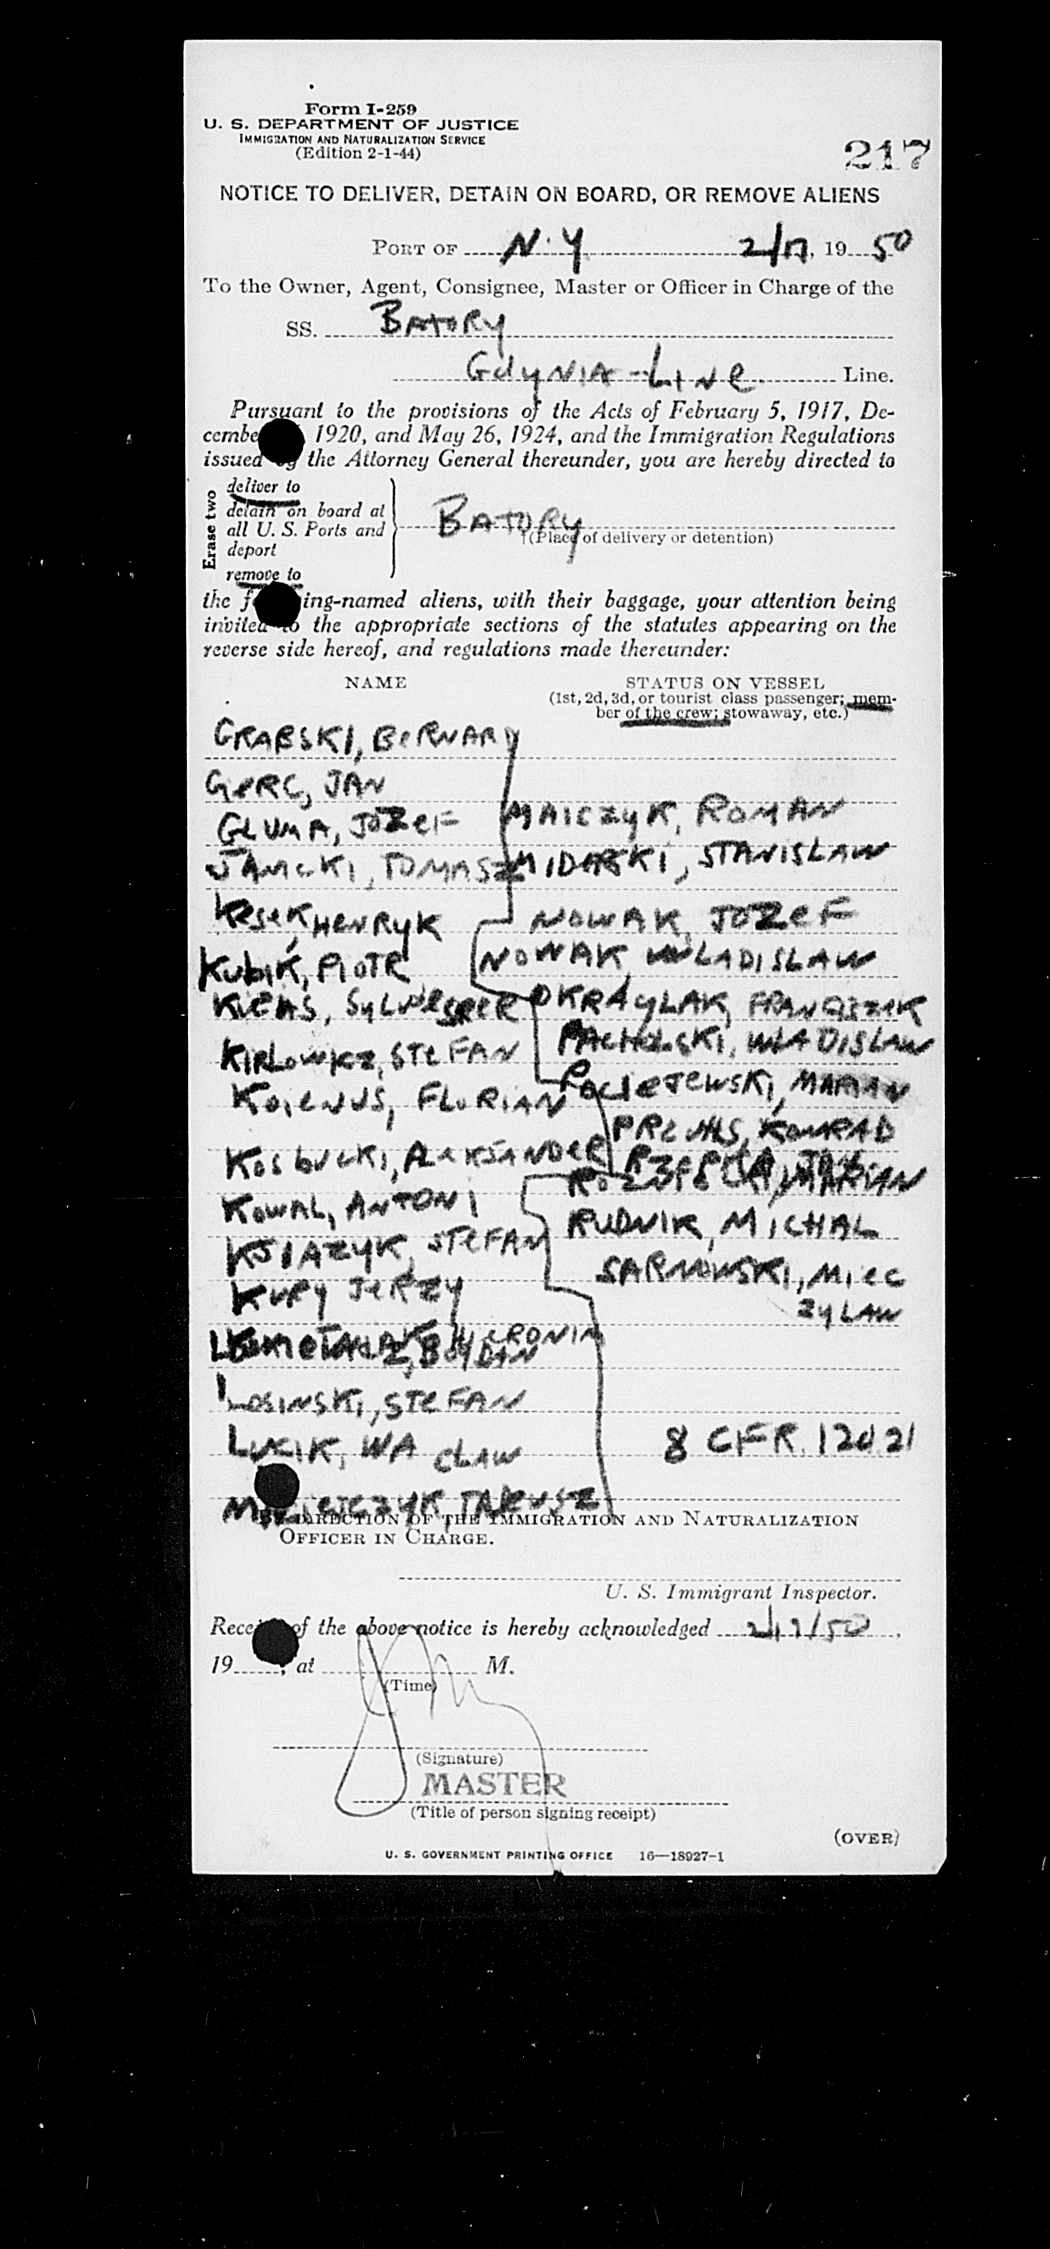 Form I-259
U. S. DEPARTMENT OF JUSTICE
IMMIGRATION AND NATURALIZATION SERVICE
(Edition 2-1-44)
217
NOTICE TO DELIVER, DETAIN ON BOARD, OR REMOVE ALIENS
PORT OF N.Y 2/17, 1950
To the Owner, Agent, Consignee, Master or Officer in Charge of the
SS. BATORY
Gdynia-Line Line.
Pursuant to the provisions of the Acts of February 5, 1917, De-
cembe 1920, and May 26, 1924, and the Immigration Regulations
issued by the Attorney General thereunder, you are hereby directed to
Erase two
deliver to
detain on board at
all U. S. Ports and
deport
remove to
BATORY
(Place of delivery or detention)
the f ing-named aliens, with their baggage, your attention being
invited to the appropriate sections of the statutes appearing on the
reverse side hereof, and regulations made thereunder:
NAME
STATUS ON VESSEL
(1st, 2d, 3d, or tourist class passenger; mem-
ber of the crew; stowaway, etc.)
GRABSKI, BERNARD
GERC, JAN
GLUMA, JOZEF
TOMASZ
HENRYK
KUBIK, PIOTR
STEFAN
FLORIAN
ALEKSANDER
KOWAL, ANTONI
KSIAZYK, STEFAN
KURY JERZY
LOSINSKI, STEFAN
WACLAW
TADEUSZ
ROMAN
STANISLAW
NOWAK, JOZEF
NOWAK, WLADISLAW
FRANCISZEK
WLADISLAW
MARIAN
KONRAD
RZEPKA, JAN
MARIAN
RUDNIK, MICHAL
SARNOWSKI, MIEC
ZYLAW
8 CFR. 120.21
BY DIRECTION OF THE IMMIGRATION AND NATURALIZATION
OFFICER IN CHARGE.
U. S. Immigrant Inspector.
Receipt of the above notice is hereby acknowledged 2/17/50,
19 , at M.
(Time)
(Signature)
MASTER
(Title of person signing receipt)
(OVER)
U. S. GOVERNMENT PRINTING OFFICE 16—18927-1